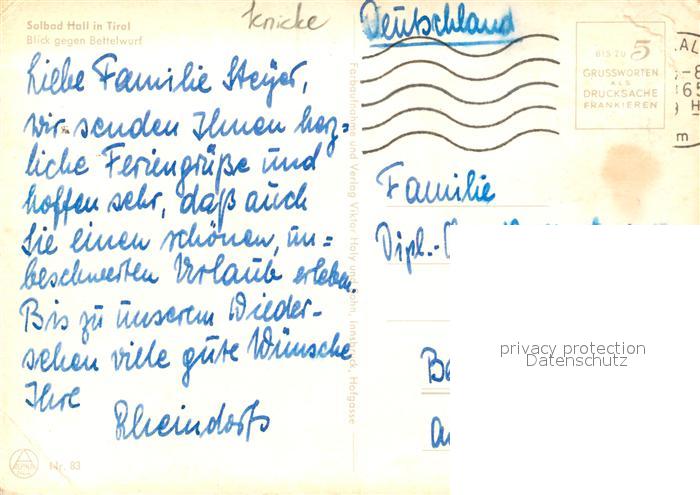 Solbad Hall in Tirol
Blick gegen Bettelwurf
Knicke
Liebe Familie Steyer,
wir senden Ihnen herz=
liche Feriengrüße und
hoffen sehr, daß auch
Sie einen schönen, un=
beschwerten Urlaub erleben.
Bis zu unserem Wieder-
sehen viele gute Wünsche
Ihre
Rheindorfs
Nr. 83
Farbaufnahme und Verlag Viktor Holy und Sohn, Innsbruck, Hofgasse
Deutschland
BIS ZU 5
GRUSSWORTEN
ALS
DRUCKSACHE
FRANKIEREN
Familie
Dipl.-
privacy protection
Datenschutz